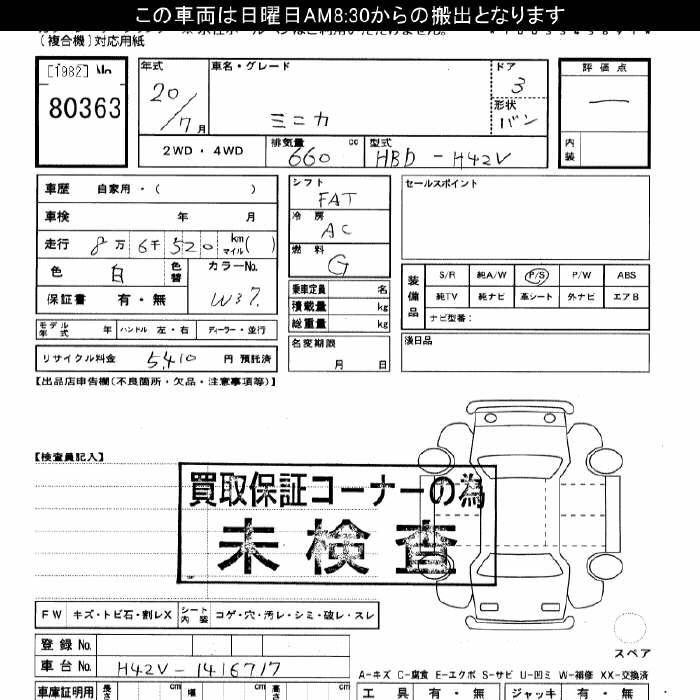 この車両は日曜日AM8:30からの搬出となります
(複合機)対応用紙
[1982] No
80363
年式
20/7月
車名・グレード
ミニカ
ドア
3
形状
バン
評価点
—
内装
2WD・4WD
排気量
660 cc
型式
HBD-H42V
車歴 自家用・( )
車検 年 月
走行 8万6千520 km マイル( )
色 白 色替
カラーNo.
W37.
保証書 有・無
モデル年式 年 ハンドル 左・右 ディーラー・並行
リサイクル料金 5,410 円 預託済
シフト
FAT
冷房
AC
燃料
G
乗車定員 名
積載量 kg
総重量 kg
名変期限
月 日
セールスポイント
装備品
S/R 純A/W P/S P/W ABS
純TV 純ナビ 革シート 外ナビ エアB
ナビ型番:
欠品
【出品店申告欄(不良箇所・欠品・注意事項等)】
【検査員記入】
買取保証コーナーの為
未検査
FW キズ・トビ石・割レX シート内装 コゲ・穴・汚レ・シミ・破レ・スレ
スペア
登録No.
車台No. H42V-1416717
A-キズ C-腐食 E-エクボ S-サビ U-凹ミ W-補修 XX-交換済
車庫証明用 長さ cm 幅 cm 高さ cm
工具 有・無 ジャッキ 有・無